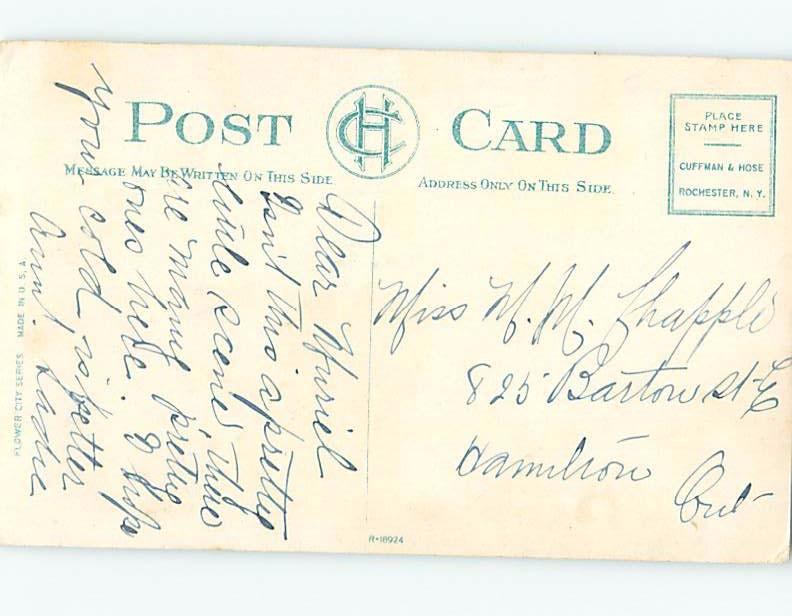 POST CARD
CHC
MESSAGE MAY BE WRITTEN ON THIS SIDE
ADDRESS ONLY ON THIS SIDE
PLACE
STAMP HERE
CUFFMAN & HOSE
ROCHESTER, N. Y.
Dear Muriel
Isn't this a prettie
little scene. There
are manie prettie
ones here. I hope
your cold is better
Aunt Sadie
Miss M. M. Chapple
825 Barton St E
Hamilton
Ont
FLOWER CITY SERIES MADE IN U.S.A.
R-18924